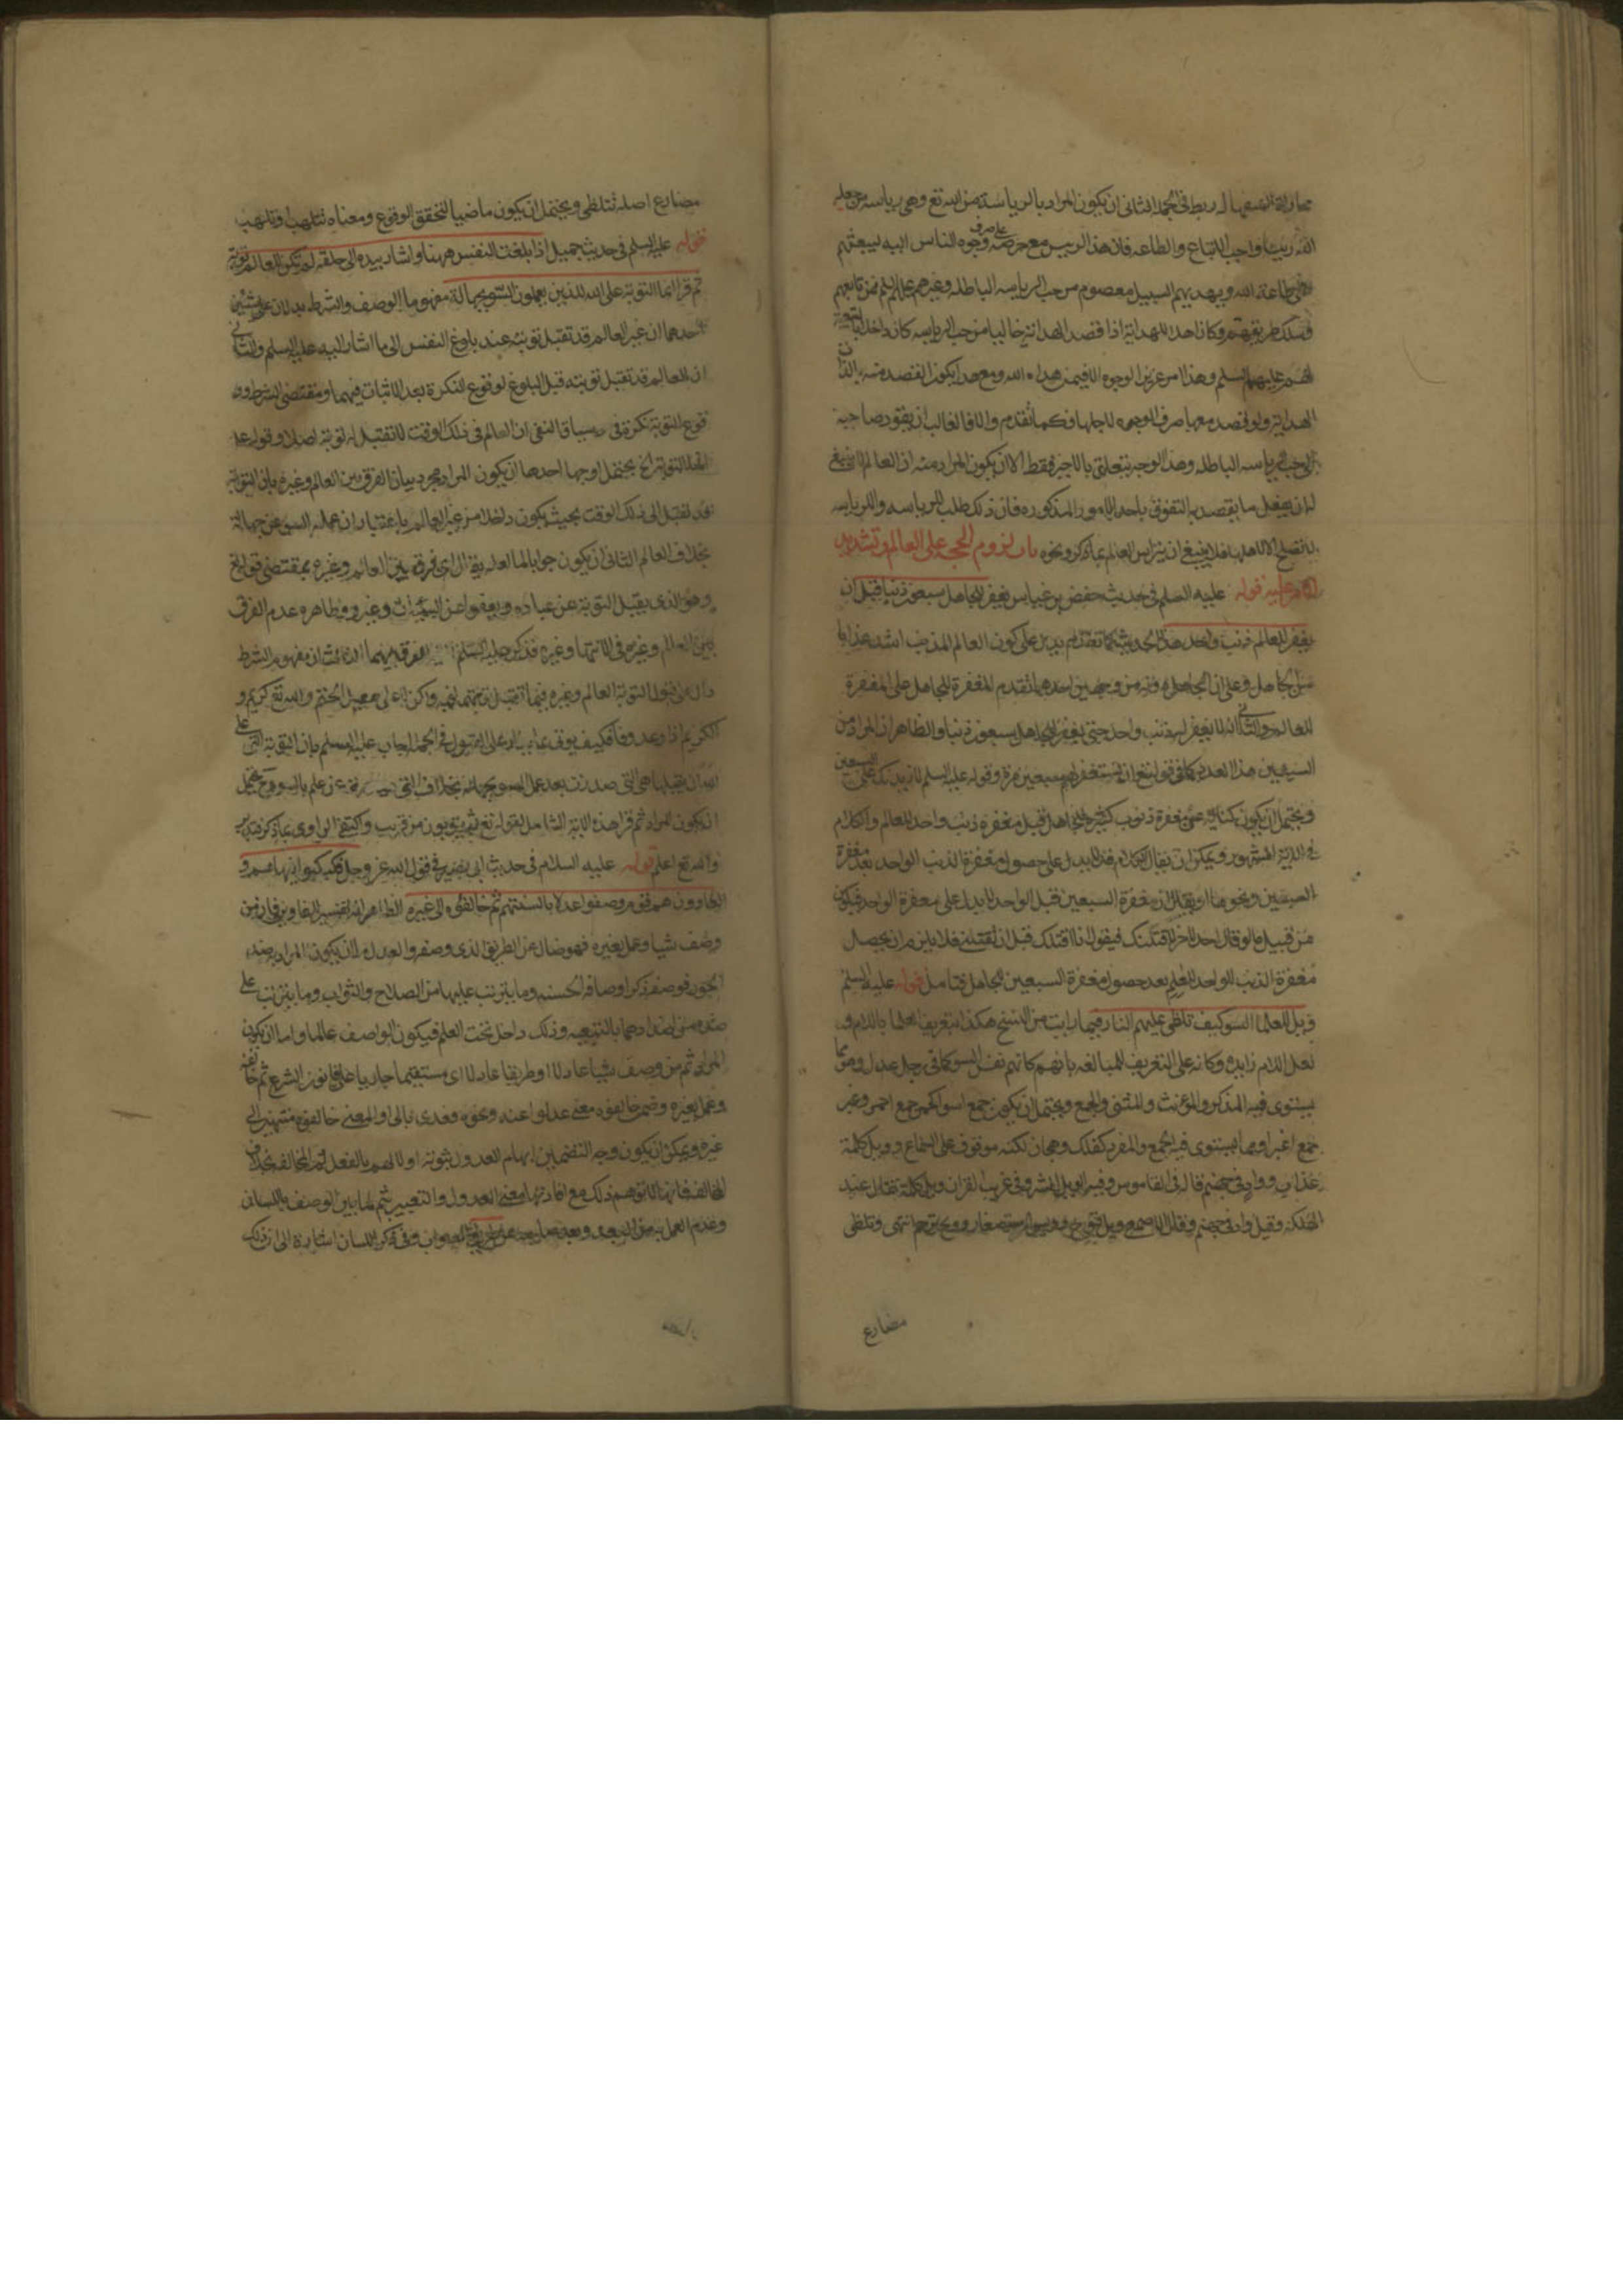 ربط في الجملة الثاني ان يكون المراد بالرياسة من الله تع وهي رياسة من جعله
الله رييسا واجب الاتباع والطاعه فان هذا الرييس مع حرصه على صرف وجوه الناس اليه ليبعثهم
على طاعة الله ويهديهم السبيل معصوم من حب الرياسه الباطله وغيرهم عليهم السلم ممن تابعهم
وسلك طريقتهم وكان اهلا للهداية اذا قصد الهداية خاليا من حب الرياسه كان داخلا
عليهم السلم وهذا امر عزيز الوجود الا فيمن هداه الله ومع هذا يكون القصد منه بالذات
الهداية ولو قصد معها صرف الوجوه لاجلها فكما تقدم والا فالغالب ان يقود صاحبه
الى حب الرياسه الباطله وهذا الوجه يتعلق بالاخير فقط الا ان يكون المراد منه ان العالم لا ينبغي
له ان يفعل ما يقصد به التفوق باحد الامور المذكوره فان ذلك طلب للرياسه والرياسه
لا تصلح الا لاهلها فلا ينبغي ان يتراس العالم بما ذكر ونحوه باب لزوم الحجة على العالم وتشديد
الامر عليه قوله عليه السلم في حديث حفص بن غياث يغفر للجاهل سبعون ذنبا قبل ان
يغفر للعالم ذنب واحد هذا الحديث كما تقدم يدل على كون العالم المذنب اشد عذابا
من الجاهل وعلى ان الجاهل من وجهين احدهما تقدم المغفرة للجاهل على المغفرة
للعالم والثاني انه لا يغفر له ذنب واحد حتى يغفر للجاهل سبعون ذنبا والظاهر ان المراد من
السبعين هذا العدد كما في قوله تع ان تستغفر لهم سبعين مرة وقوله عليه السلم لازيدن على السبعين
ويحتمل ان يكون كناية عن مغفرة ذنوب كثيرة للجاهل قبل مغفرة ذنب واحد للعالم والكلام
في الاية المشهور ويمكن ان يقال الكلام قد لا يدل على حصول مغفرة الذنب الواحد بعد مغفرة
السبعين ونحوها او يقال ان مغفرة السبعين قبل الواحد لا يدل على مغفرة الواحد فيكون
من قبيل ما لو قال احد لاخر لاقتلنك فيقول انا اقتلك قبل ان تقتلني فلا يلزم ان يحصل
مغفرة الذنب الواحد للعالم بعد حصول مغفرة السبعين للجاهل فتامل قوله عليه السلم
ويل للعلما السو كيف تلظى عليهم النار فيما رايت من النسخ هكذا بتعريف العلما باللام و
لعل اللام زايده وكانه على التعريف للمبالغه بانهم كانهم نفس السو كما في رجل عدل وهو مما
يستوى فيه المذكر والمؤنث والمثنى والجمع ويحتمل ان يكون جمع اسوا كحمر جمع احمر وغبر
جمع اغبر او مما يستوى فيه الجمع والمفرد كفلك وهجان لكنه موقوف على السماع وويل كلمة
عذاب وواد في جهنم قاله في القاموس وفيه الويل الشر وفي غريب القران ويل كلمة تقال عند
الهلكة وقيل واد في جهنم وقال الاصمعي ويل قبوح وويس استصغار وويح ترحم انتهى وتلظى
مضارع
مضارع اصله تتلظى ويحتمل ان يكون ماضيا لتحقق الوقوع ومعناه تتلهب وتلهب
قوله عليه السلم في حديث جميل اذا بلغت النفس ههنا واشار بيده الى حلقه لم تكن للعالم توبة
ثم قرا انما التوبة على الله للذين يعملون السو بجهالة مفهوما الوصف والشرط يدلان على شيئين
احدهما ان غير العالم قد تقبل توبته عند بلوغ النفس الى ما اشار اليه عليه السلم والثاني
ان العالم قد تقبل توبته قبل البلوغ لوقوع النكرة بعد الاثبات فيهما ومقتضى الشرط وو
قوع التوبة نكرة في سياق النفي ان العالم في ذلك الوقت لا تقبل له توبة اصلا وقوله عد
انما التوبة الخ يحتمل اوجها احدها ان يكون المراد مجرد بيان الفرق بين العالم وغيره بان التوبة
قد تقبل الى ذلك الوقت بحيث يكون داخلا من غير العالم باعتبار ان عمله السو عن جهالة
بخلاف العالم الثاني ان يكون جوابا لما لعله يقال اي فرق بين العالم وغيره بمقتضى قوله تع
وهو الذي يقبل التوبة عن عباده ويعفو عن السيئات وغيره وظاهره عدم الفرق
بين العالم وغيره فذكر عليه السلم الفرق بينهما الثالث ان مفهوم الشرط
دال على قبول التوبة العالم وغيره والله تع كريم و
الكريم اذا وعد وفا فكيف على القبول في الجملة اجاب عليه السلم بان التوبة التي على
الله ان يقبلها هي التي صدرت بعد عمل السو بجهالة بخلاف التي عن علم بالسو وح يحتمل
ان يكون المراد ثم قرا هذه الاية الشامل لقوله تع ثم يتوبون من قريب واكتفى الراوي بما ذكر فتدبر
والله تع اعلم قوله عليه السلام في حديث ابي بصير في قول الله عز وجل فكبكبوا فيها هم و
الغاوون هم قوم وصفوا عدلا بالسنتهم ثم خالفوه الى غيره الظاهر انه تفسير للغاوين فان من
وصف شيا وعمل بغيره فهو ضال عن الطريق الذي وصفه والعدل اما ان يكون المراد به ضد
الجور فوصفه ذكر اوصافه الحسنه وما يترتب عليها من الصلاح والثواب وما يترتب على
ضده من اضدادها بالتبعيه وذلك داخل تحت العلم فيكون الواصف عالما واما ان يكون
المراد ثم من وصف شيا عادلا او طريقا عادلا اي مستقيما جاريا على قانون الشرع ثم خالفه
وعمل بغيره وضمن خالفوه معنى عدلوا عنه ونحوه فعدى بالى او المعنى خالفوه منتهين الى
غيره ويمكن ان يكون وجه التضمين ايهام العدول بثم المخالفه بخلاف
المخالف فانه لا توهم ذلك مع افادتها معنى العدول والتعبير بثم لما بين الوصف باللسان
وعدم العمل به من البعد وبعد عن طريق الصواب وفي ذكر اللسان اشارة الى ان ذلك